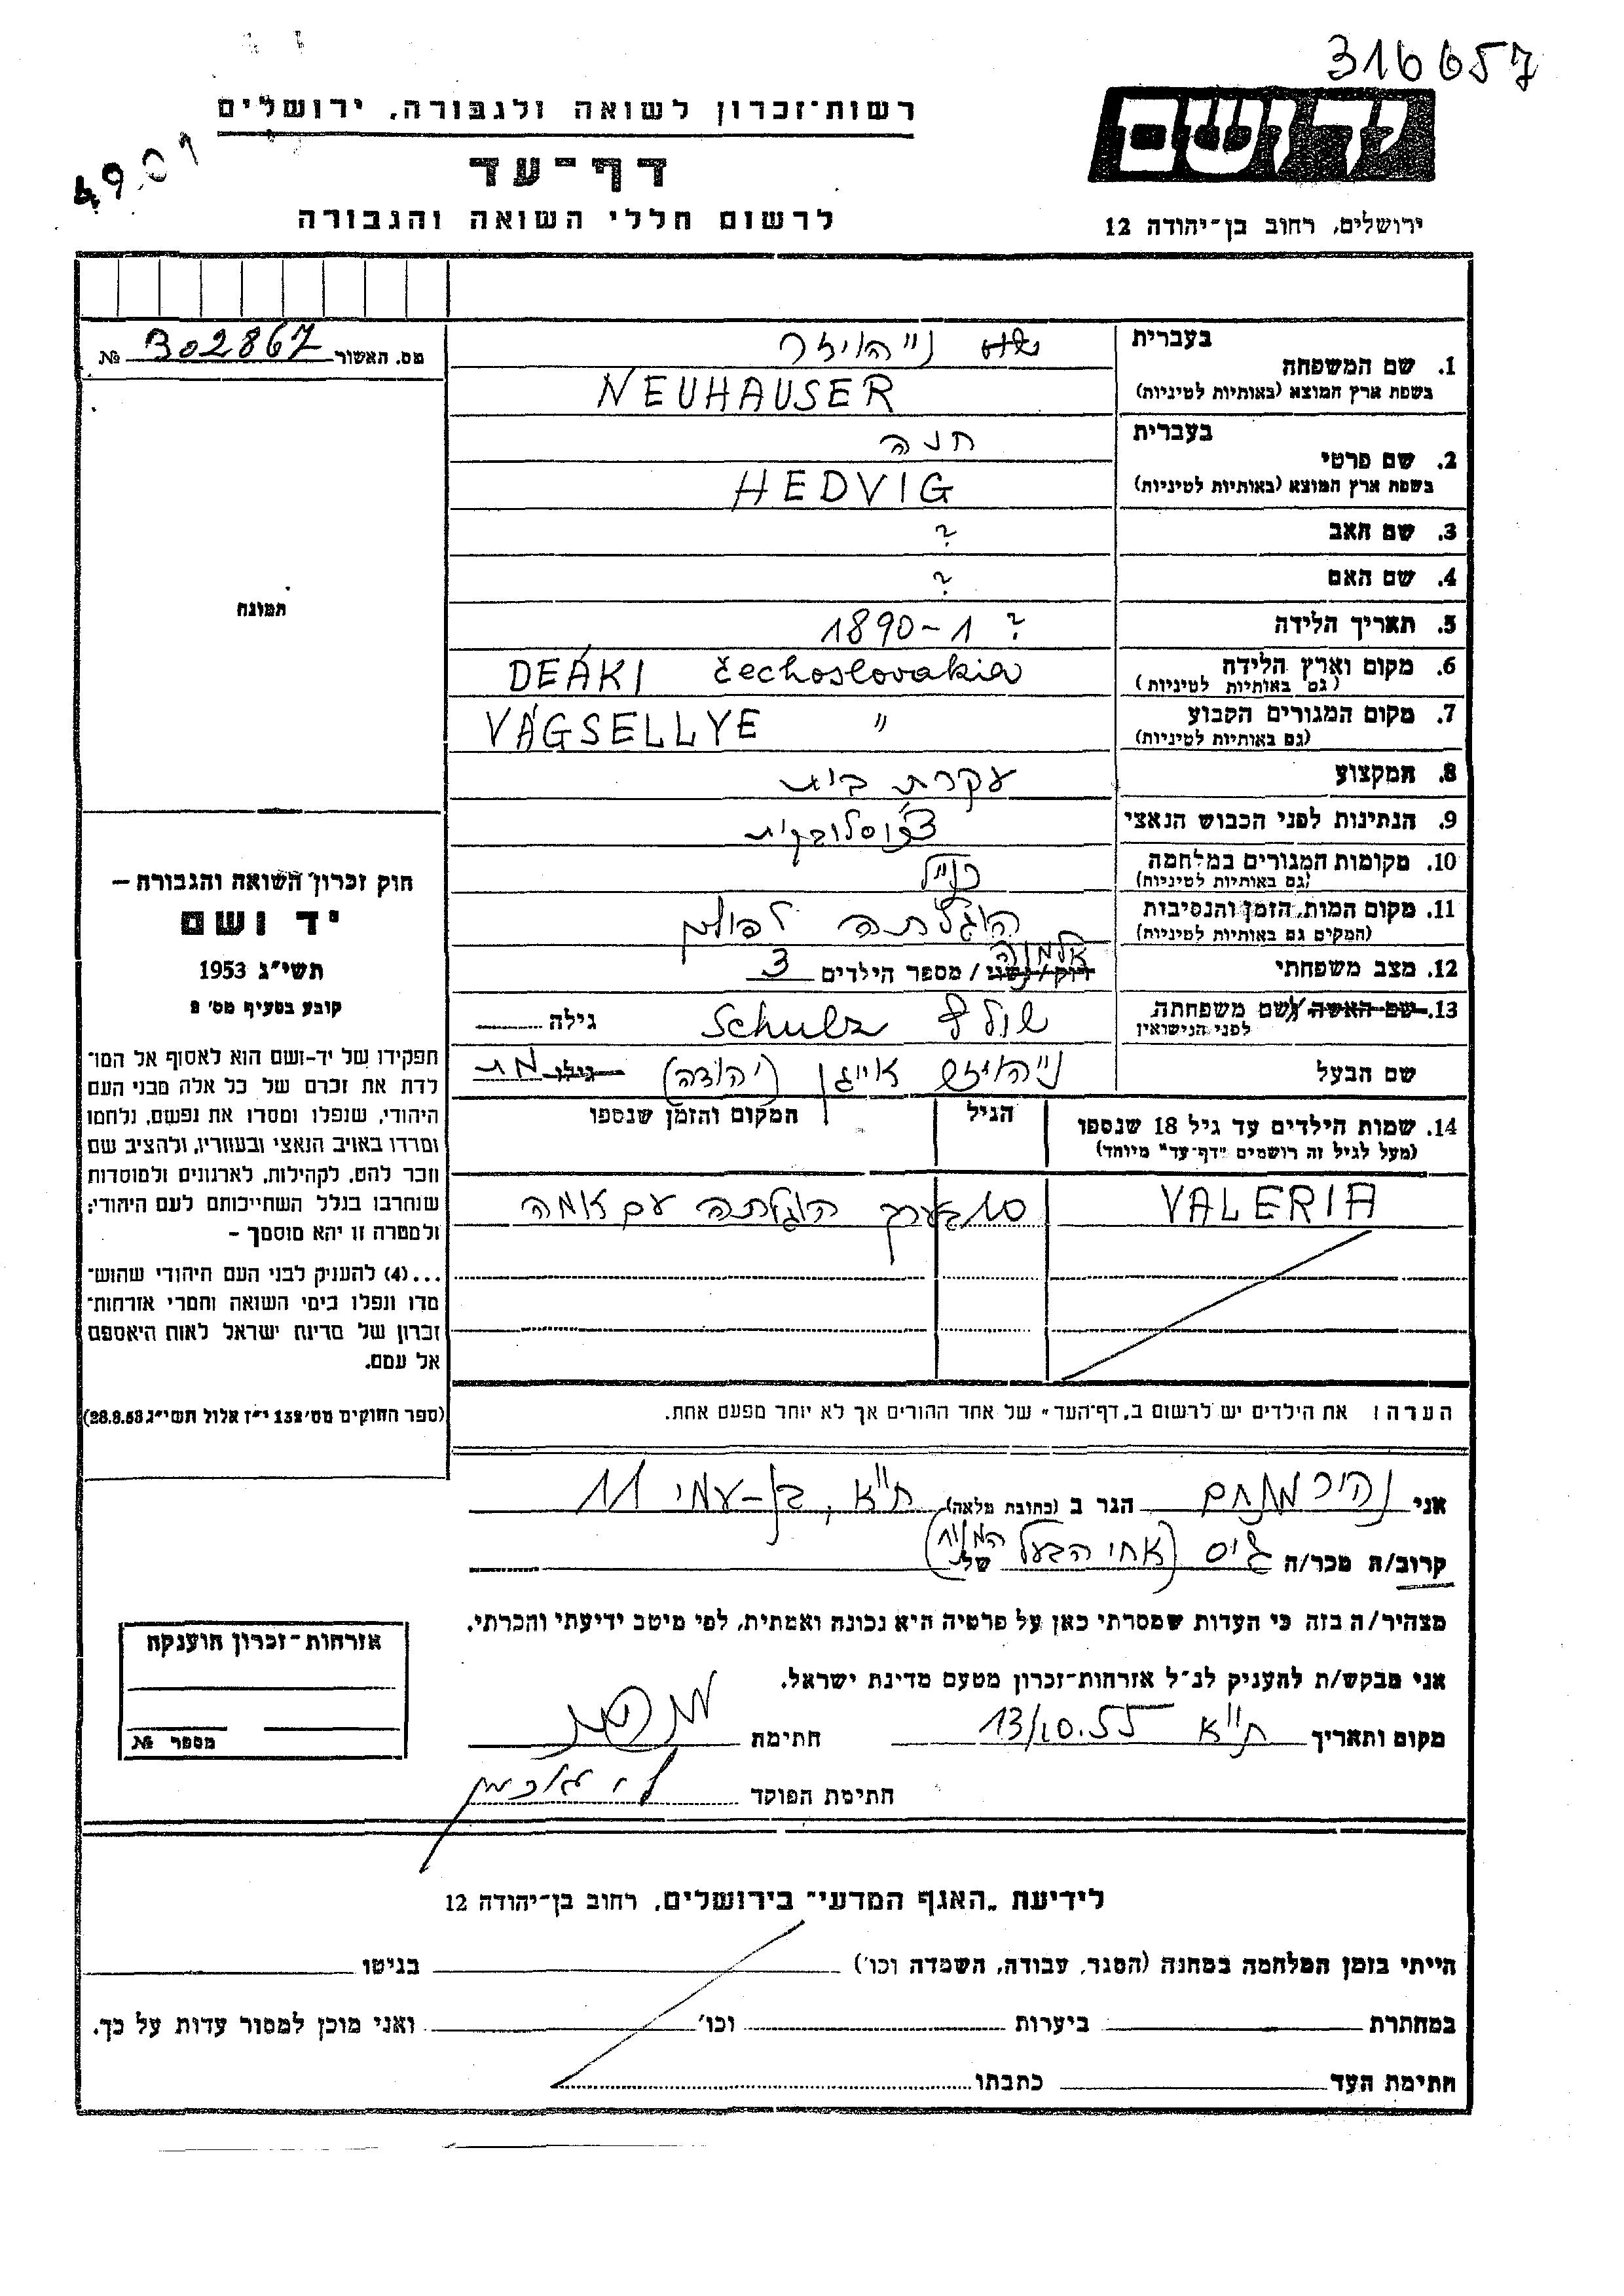 316657
רשות־זכרון לשואה ולגבורה, ירושלים
דף־עד
לרשום חללי השואה והגבורה
יד ושם
ירושלים, רחוב בן־יהודה 12
49.01
מס. האשור 302867 №
תמונה
1. שם המשפחה
בעברית
נייהויזר
בשפת ארץ המוצא (באותיות לטיניות)
NEUHAUSER
2. שם פרטי
בעברית
חנה
בשפת ארץ המוצא (באותיות לטיניות)
HEDVIG
3. שם האב ?
4. שם האם ?
5. תאריך הלידה ? 1890-1
6. מקום וארץ הלידה
(גם באותיות לטיניות)
DEÁKI čechoslovakia
7. מקום המגורים הקבוע
(גם באותיות לטיניות)
VÁGSELLYE "
8. המקצוע עקרת בית
9. הנתינות לפני הכבוש הנאצי צ'כוסלובקית
10. מקומות המגורים במלחמה
(גם באותיות לטיניות)
כנ"ל
11. מקום המות, הזמן והנסיבות
(המקום גם באותיות לטיניות)
הוגלתה לפולין
12. מצב משפחתי אלמנה
רוק/נשוי / מספר הילדים 3
13. שם האשה / ושם משפחתה
לפני הנישואין
שולץ Schulz גילה
שם הבעל נייהויזר אייגן (יהודה) גילו מת
14. שמות הילדים עד גיל 18 שנספו
(מעל לגיל זה רושמים "דף־עד" מיוחד)
הגיל
המקום והזמן שנספו
VALERIA
10 בערך הוגלתה עם אמה
הערה: את הילדים יש לרשום ב„דף־העד" של אחד ההורים אך לא יותר מפעם אחת.
חוק זכרון השואה והגבורה –
יד ושם
תשי"ג 1953
קובע בסעיף מס' 2
תפקידו של יד-ושם הוא לאסוף אל המו־
לדת את זכרם של כל אלה מבני העם
היהודי, שנפלו ומסרו את נפשם, נלחמו
ומרדו באויב הנאצי ובעוזריו, ולהציב שם
וזכר להם, לקהילות, לארגונים ולמוסדות
שנחרבו בגלל השתייכותם לעם היהודי;
ולמטרה זו יהא מוסמך –
...(4) להעניק לבני העם היהודי שהוש־
מדו ונפלו בימי השואה והמרי אזרחות־
זכרון של מדינת ישראל לאות היאספם
אל עמם.
(ספר החוקים מס' 132 י"ז אלול תשי"ג 28.8.53)
אני נהיר מנחם הגר ב (כתובת מלאה) ת"א, בן-עמי 11
קרוב/ה מכר/ה גיס (אחי הבעל המנוח) של
מצהיר/ה בזה כי העדות שמסרתי כאן על פרטיה היא נכונה ואמתית, לפי מיטב ידיעתי והכרתי.
אני מבקש/ת להעניק לנ"ל אזרחות־זכרון מטעם מדינת ישראל.
מקום ותאריך ת"א 13/10.55 חתימת
חתימת הפוקד
אזרחות־זכרון הוענקה
מספר №
לידיעת „האגף המדעי" בירושלים, רחוב בן־יהודה 12
הייתי בזמן המלחמה במחנה (הסגר, עבודה, השמדה וכו') בגיטו
במחתרת ביערות וכו' ואני מוכן למסור עדות על כך.
חתימת העד כתבתו